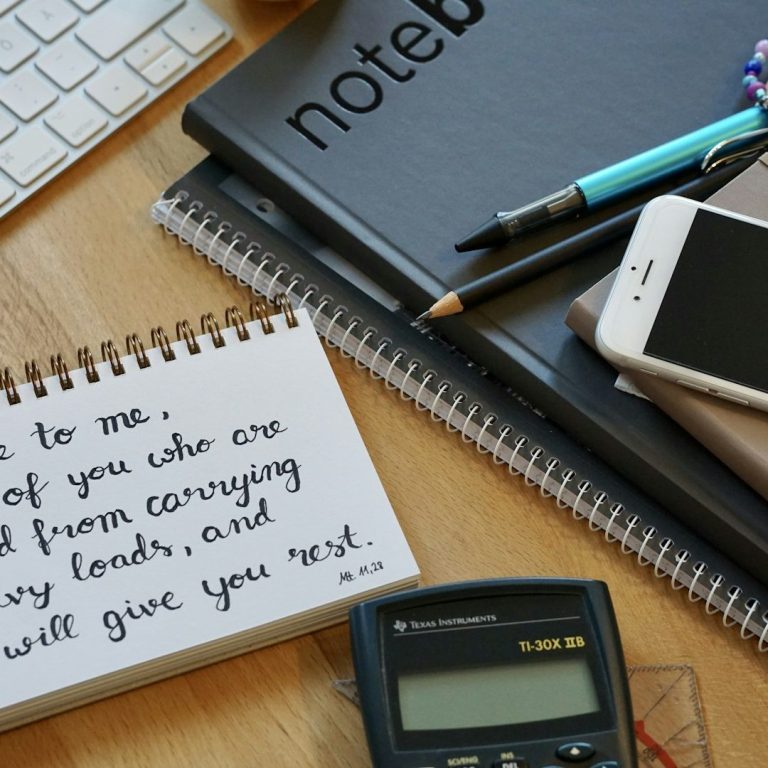 option
command
noteb
e to me,
of you who are
d from carrying
vy loads, and
will give you rest.
Mt. 11,28
TEXAS INSTRUMENTS
TI-30X IIB
SCI/ENG INS
DEL